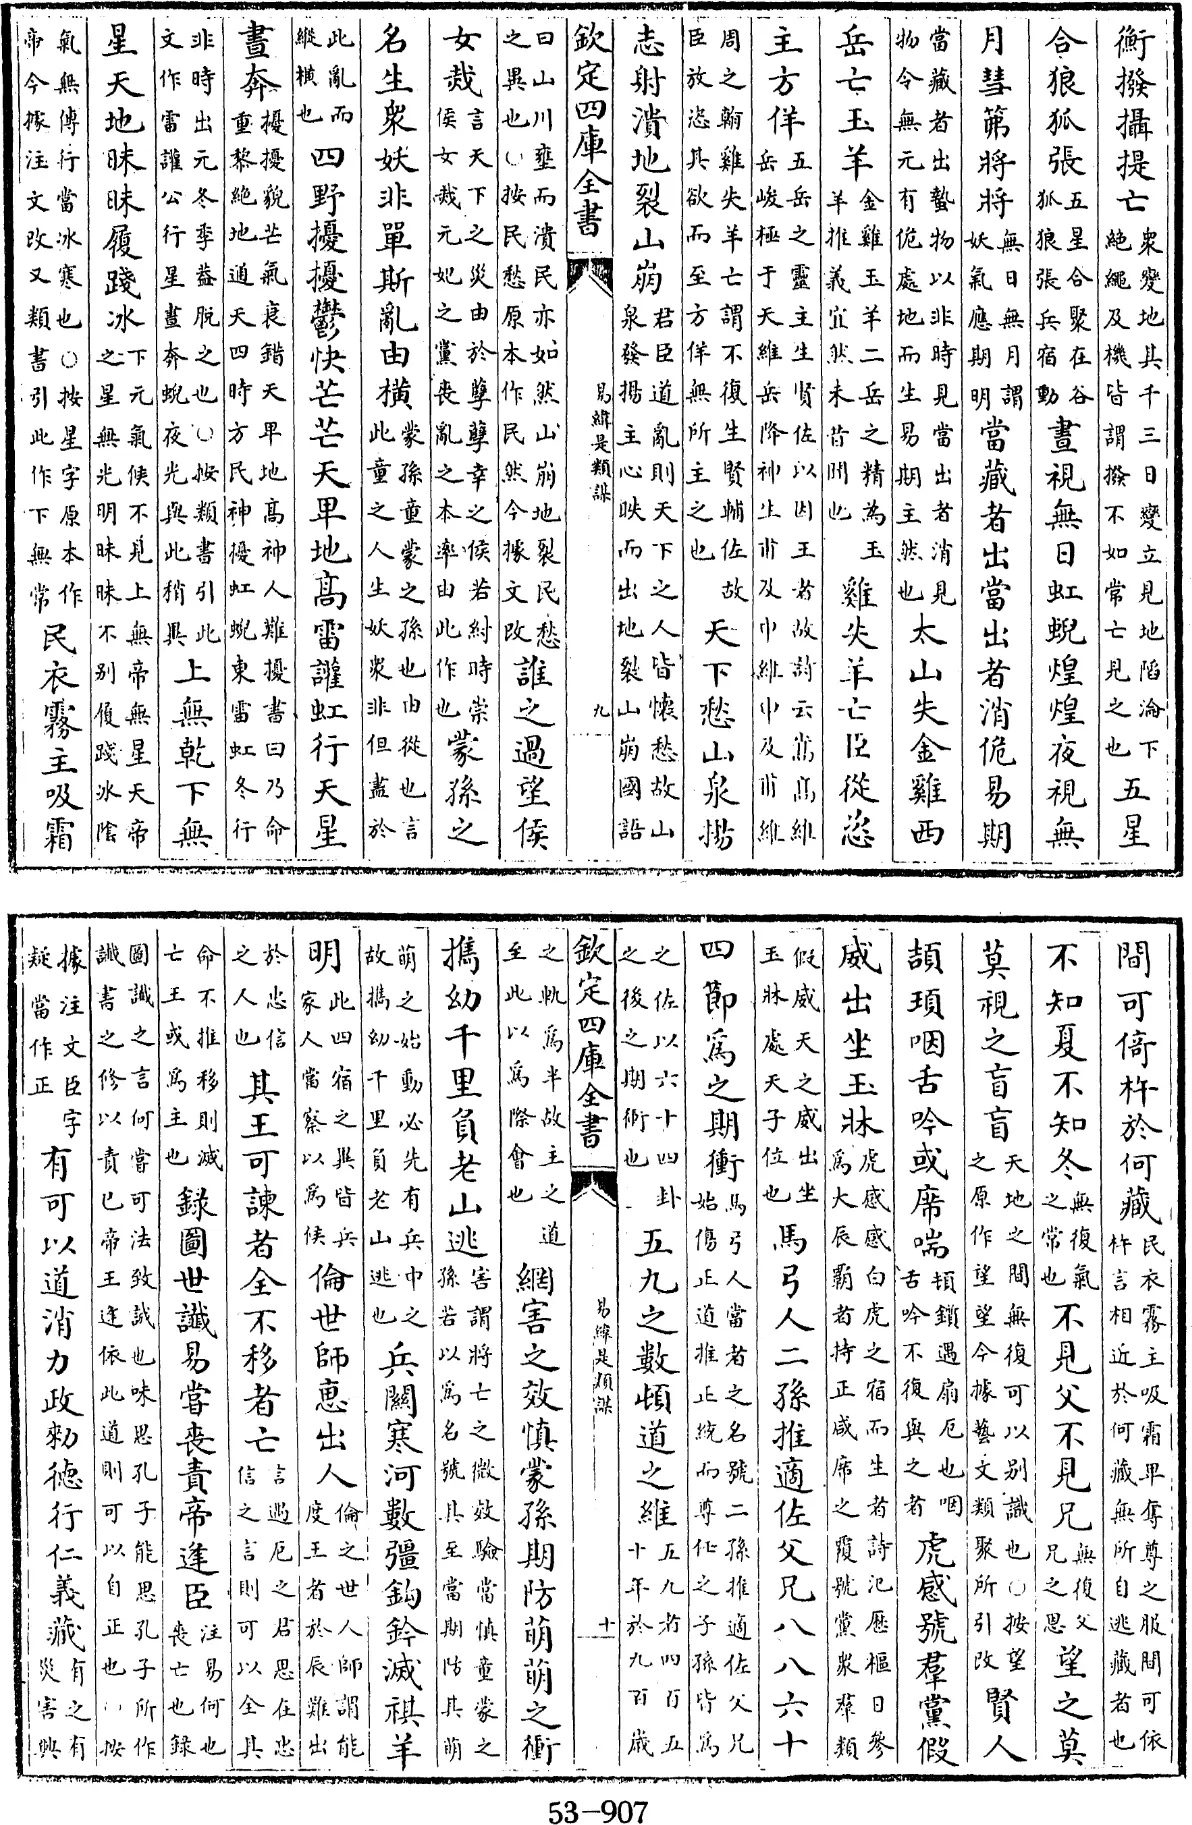 衡撥攝提亡衆變地其千三日變立見地陷淪下絕繩及機皆謂撥不如常亡見之也五星
合狼狐張五星合聚在谷狐狼張兵宿動晝視無日虹蜺煌煌夜視無
月彗笫將將無日無月謂妖氣應期明當藏者出當出者消佹易期
當藏者出蟄物以非時見當出者消見物今無元有佹處地而生易期主然也太山失金雞西
岳亡玉羊金雞玉羊二岳之精為玉羊推義宜然未昔聞也雞失羊亡臣從恣
主方佯五岳之靈主生賢佐以因王者故詩云嵩高維岳峻極于天維岳降神生甫及申維申及甫維
周之翰雞失羊亡謂不復生賢輔佐故臣放恣其欲而至方佯無所主之也天下愁山泉揚
志射潰地裂山崩君臣道亂則天下之人皆懷愁故山泉發揚主心昳而出地裂山崩國語
欽定四庫全書 易緯是類謀 九
曰山川壅而潰民亦如然山崩地裂民愁之異也○按民愁原本作民然今據文改誰之過望侯
女烖言天下之災由於孽孽幸之侯若紂時崇侯女烖元妃之黨喪亂之本率由此作也蒙孫之
名生衆妖非單斯亂由橫蒙孫童蒙之孫也由從也言此童之人生妖衆非但盡於
此亂而縱橫也四野擾擾鬱快芒芒天卑地高雷讙虹行天星
晝奔擾擾貌芒氣衰錯天卑地高神人雜擾書曰乃命重黎絕地道天四時方民神擾虹蜺東雷虹冬行
非時出元冬季益脫之也○按類書引此文作雷讙公行星晝奔蜺夜光與此稍異上無乾下無
星天地昧昧履踐冰下元氣侯不見上無帝無星天帝之星無光明昧昧不別履踐冰陰
氣無傳行當冰寒也○按星字原本作帝今據注文改又類書引此作下無常民衣霧主吸霜
間可倚杵於何藏民衣霧主吸霜卑奪尊之服間可依杵言相近於何藏無所自逃藏者也
不知夏不知冬無復氣之常也不見父不見兄無復父兄之思望之莫
莫視之盲盲天地之間無復可以別識也○按望之原作望望今據藝文類聚所引改賢人
頡頊咽舌吟或席喘頊鎖遇扇厄也咽舌吟不復與之者虎感號羣黨假
威出坐玉牀虎感感白虎之宿而生者詩汜歷樞曰參為大辰霸者持正咸席之覆號黨衆羣類
假威天之威出坐玉牀處天子位也馬弓人二孫推適佐父兄八八六十
四節爲之期衝馬弓人當者之名號二孫推適佐父兄始傷正道推止統而尊作之子孫皆爲
之佐以六十四卦之後之期術也五九之數頓道之維五九者四百五十年於九百歲
欽定四庫全書 易緯是類謀 十
之軌爲半故主之道至此以爲際會也網害之效慎蒙孫期防萌萌之衝
攜幼千里負老山逃害謂將亡之微效驗當慎童蒙之孫若以爲名號具至當期防其萌
萌之始動必先有兵中之故攜幼千里負老山逃也兵闗寒河數彊鈎鈐滅祺羊
明此四宿之異皆兵家人當察以爲候倫世師恵出人倫之世人師謂能度王者於辰難出
於忠信之人也其王可諫者全不移者亡言遇厄之君思在忠信之言則可以全其
命不推移則滅亡王或爲主也録圖世讖易嘗喪責帝逢臣注易何也喪亡也録
圖讖之言何嘗可法致誠也味思孔子能思孔子所作讖書之修以責已帝王逢依此道則可以自正也○按
據注文臣字疑當作正有可以道消力政勑德行仁義藏有之有災害興
53-907